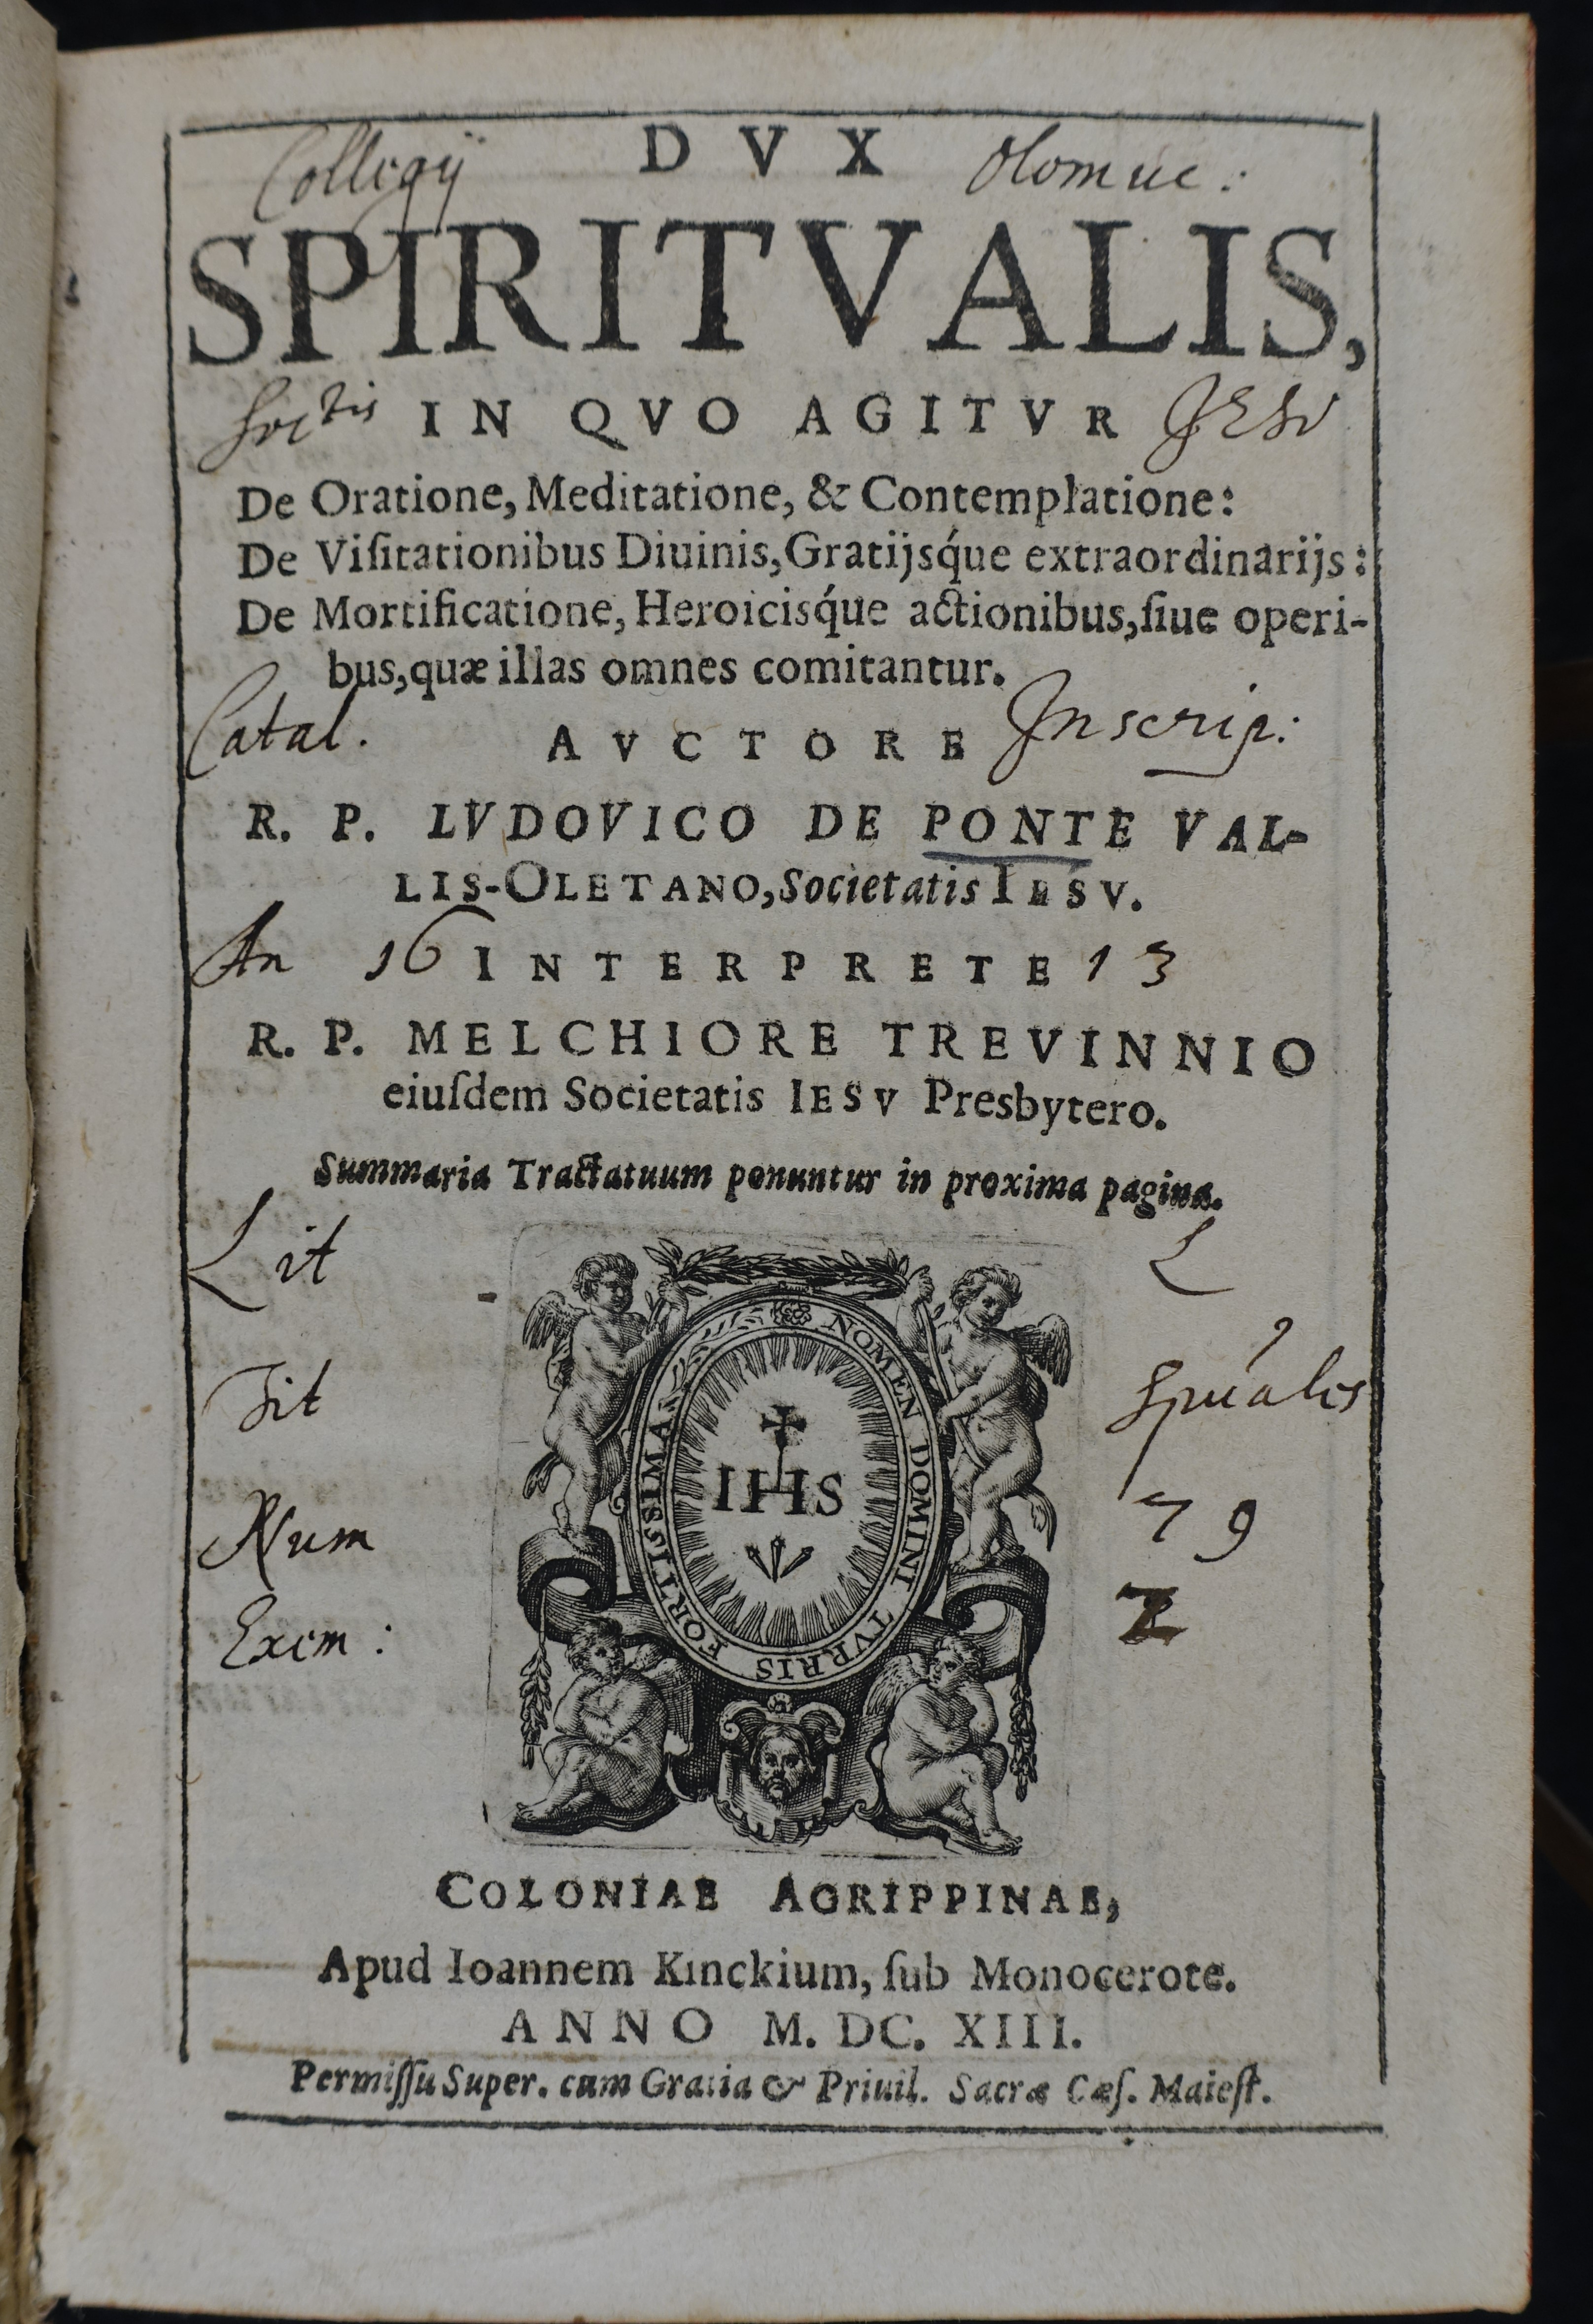 DVX
Collegij Olomuc:
SPIRITVALIS,
Soctis IN QVO AGITVR JESV
De Oratione, Meditatione, & Contemplatione:
De Viſitationibus Diuinis, Gratijsq́ue extraordinarijs:
De Mortificatione, Heroicisq́ue actionibus, ſiue operi-
bus, quæ illas omnes comitantur.
Catal. AVCTORE Inscrip:
R. P. LVDOVICO DE PONTE VAL-
LIS-OLETANO, Societatis IESV.
An 16 INTERPRETE 13
R. P. MELCHIORE TREVINNIO
eiuſdem Societatis IESV Presbytero.
Summaria Tractatuum ponuntur in proxima pagina.
Lit L
NOMEN DOMINI TVRRIS FORTISSIMA
IHS
Tit Spũales
Num 79
Exem: 2
COLONIAE AGRIPPINAE,
Apud Ioannem Kinckium, ſub Monocerote.
ANNO M. DC. XIII.
Permiſſu Super. cum Gratia & Priuil. Sacræ Cæſ. Maieſt.